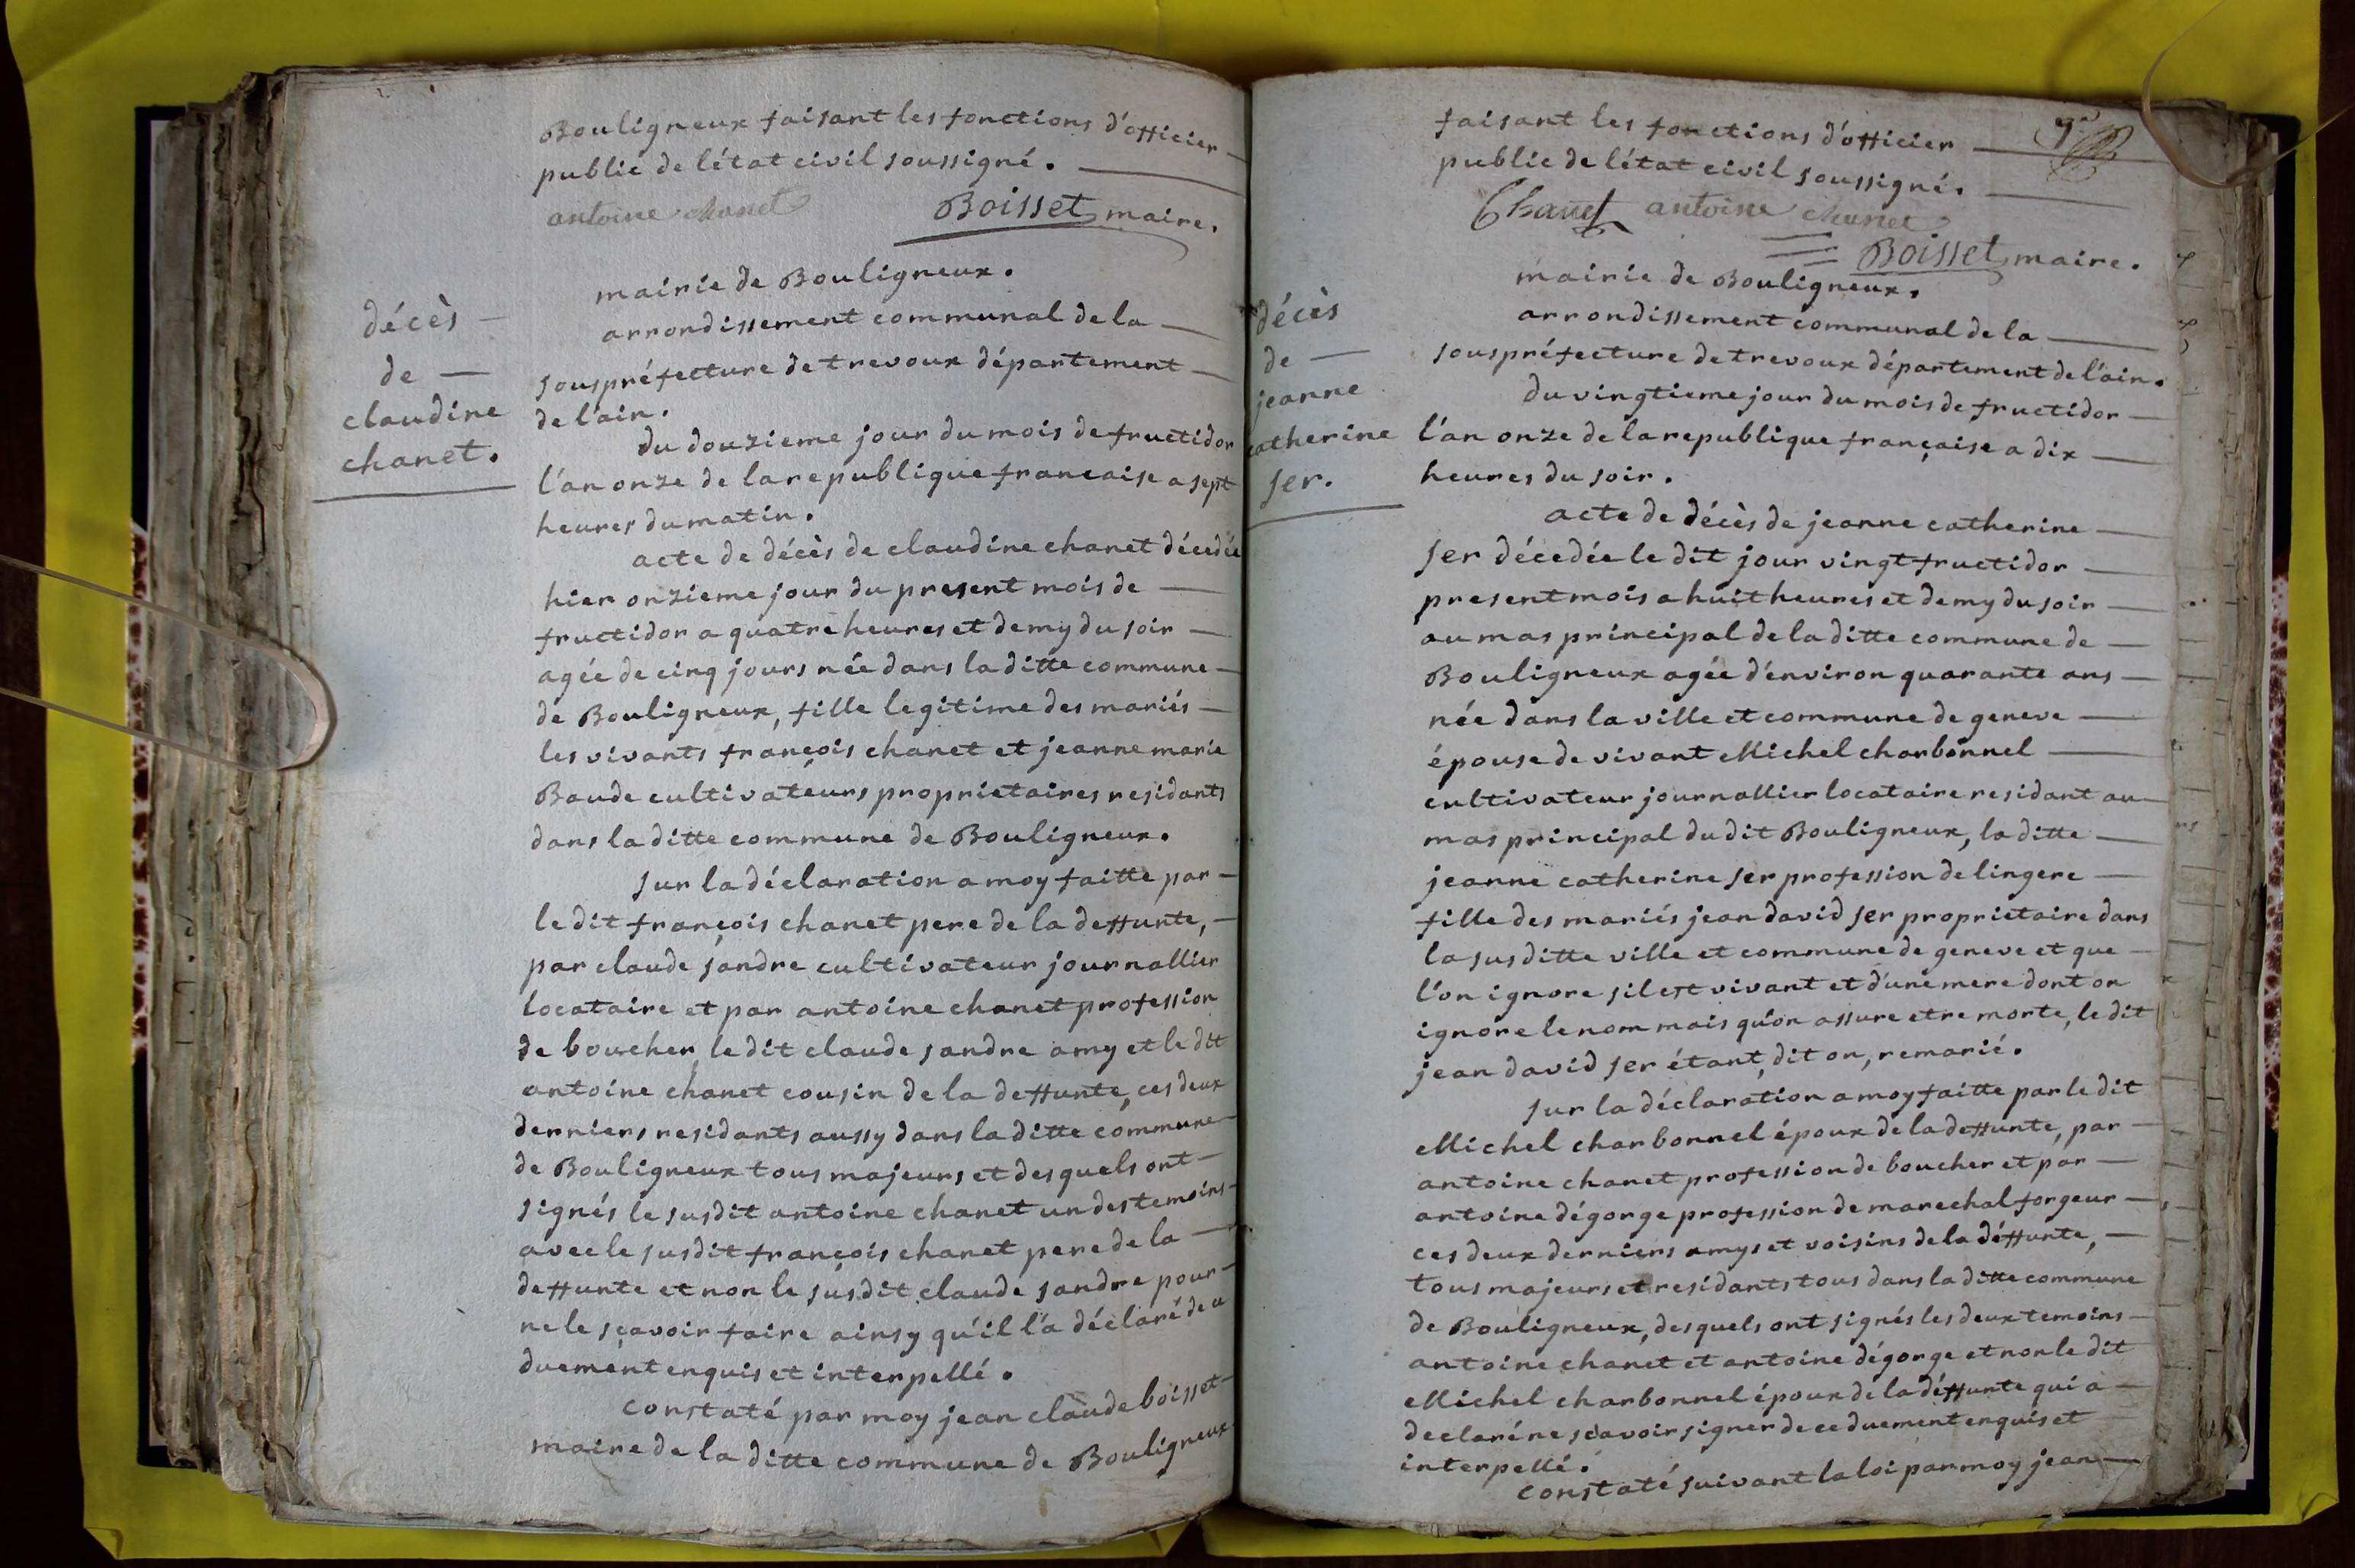 Bouligneux faisant les fonctions d'officier
public de l'état civil soussigné.
antoine chanet
Boisset maire.
mairie de Bouligneux.
décès
de
claudine
chanet.
arrondissement communal de la
souspréfecture de trevoux département
de l'ain.
du douzieme jour du mois de fructidor
l'an onze de la republique francaise a sept
heures du matin.
acte de décès de claudine chanet décedée
hier onzieme jour du present mois de
fructidor a quatre heures et demy du soir
agée de cinq jours née dans la ditte commune
de Bouligneux, fille legitime des mariés
les vivants françois chanet et jeanne marie
Baude cultivateurs proprietaires residants
dans la ditte commune de Bouligneux.
sur la déclaration a moy faitte par
le dit françois chanet pere de la deffunte,
par claude sandre cultivateur journallier
locataire et par antoine chanet profession
de boucher, le dit claude sandre amy et le dit
antoine chanet cousin de la deffunte, ces deux
derniers residants aussy dans la ditte commune
de Bouligneux tous majeurs et desquels ont
signés le susdit antoine chanet un des temoins
avec le susdit françois chanet pere de la
deffunte et non le susdit claude sandre pour
ne le sçavoir faire ainsy qu'il l'a déclaré de ce
duement enquis et interpellé.
constaté par moy jean claude boisset
maire de la ditte commune de Bouligneux
faisant les fonctions d'officier
public de l'état civil soussigné.
Chanet antoine chanet
Boisset maire.
mairie de Bouligneux.
décès
de
jeanne
catherine
ser.
arrondissement communal de la
souspréfecture de trevoux département de l'ain.
du vingtieme jour du mois de fructidor
l'an onze de la republique française a dix
heures du soir.
acte de décès de jeanne catherine
ser décedée le dit jour vingt fructidor
present mois a huit heures et demy du soir
au mas principal de la ditte commune de
Bouligneux agée d'environ quarante ans
née dans la ville et commune de geneve
épouse de vivant Michel charbonnel
cultivateur journallier locataire residant au
mas principal du dit Bouligneux, la ditte
jeanne catherine ser profession de lingere
fille des mariés jean david ser proprietaire dans
la susditte ville et commune de geneve et que
l'on ignore s'il est vivant et d'une mere dont on
ignore le nom mais qu'on assure etre morte, le dit
jean david ser étant, dit on, remarié.
sur la déclaration a moy faitte par le dit
Michel charbonnel époux de la deffunte, par
antoine chanet profession de boucher et par
antoine dégorge profession de marechal forgeur
ces deux derniers amys et voisins de la déffunte,
tous majeurs et residants tous dans la ditte commune
de Bouligneux, desquels ont signés les deux temoins
antoine chanet et antoine dégorge et non le dit
Michel charbonnel époux de la déffunte qui a
declaré ne sçavoir signer de ce duement enquis et
interpellé.
constaté suivant la loi par moy jean